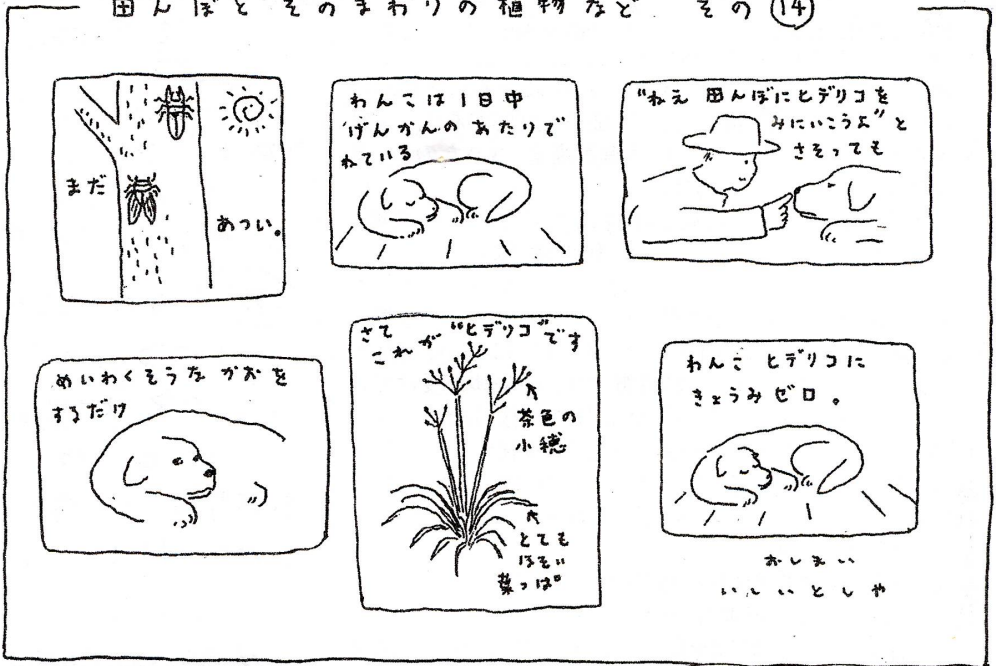 田んぼと そのまわりの植物など その⑭
まだ
あつい。
わんこは1日中
げんかんの あたりで
ねている
"ねえ 田んぼにヒデリコを
みにいこうよ"と
さそっても
めいわくそうな かおを
するだけ
さて
これが "ヒデリコ"です
茶色の
小穂
とても
ほそい
葉っぱ
わんこ ヒデリコに
きょうみゼロ。
おしまい
いしいとしや